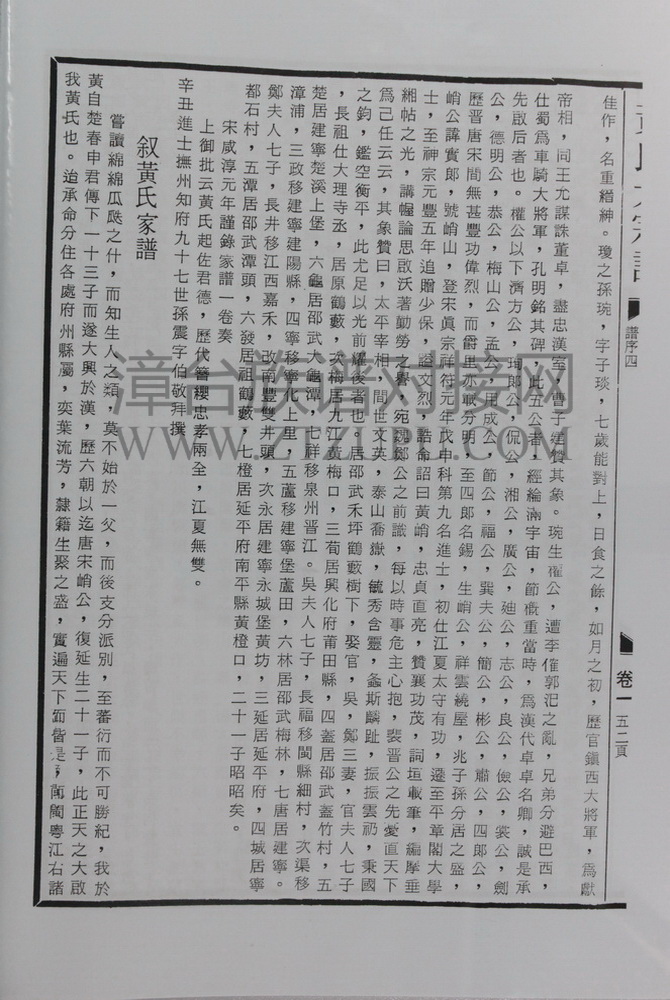 譜序四
卷一 五二頁
佳作，名重縉紳。瓊之孫琬，字子琰，七歲能對上，日食之餘，如月之初，歷官鎭西大將軍，為獻
帝相，同王允謀誅董卓，盡忠漢室，曹子建贊其象。琬生權公，遭李傕郭汜之亂，兄弟分避巴西，
仕蜀爲車騎大將軍，孔明銘其碑。此五公者，經綸滿宇宙，節概重當時，爲漢代卓卓名卿，誠是承
先啟后者也。權公以下濟方公，琦郎公，侃公，湘公，廣公，廸公，志公，良公，儉公，裳公，劍
公，德明公，恭公，梅山公，孟公，用成公，節公，福公，巽夫公，簡公，彬公，肅公，四郎公，
歷晋唐宋間無甚豐功偉烈，而爵里亦載分明，至四郎名錫，生峭公，祥雲繞屋，兆子孫分居之盛，
峭公諱實郎，號峭山，登宋眞宗祥符元年戊申科第九名進士，初仕江夏太守有功，遷至平章閣大學
士，至神宗元豐五年追贈少保，謚文烈，誥命詔曰黃峭，忠貞直亮，贊襄功茂，詞垣載筆，編摩垂
緗帖之光，講幄論思啟沃著勤勞之譽，宛魏鄭公之前識，每以時事危主心抱，裴晉公之先愛直天下
為己任云云，其象贊曰，太平宰相，間世文英，泰山喬嶽，毓秀含靈，螽斯麟趾，振振雲礽，秉國
之鈞，鑑空衡平，此尤足以光前耀後者也。居邵武禾坪鶴藪樹下，娶官，吳，鄭三妻，官夫人七子
，長祖仕大理寺丞，居原鶴藪，次梅居九江黃梅口，三荀居興化府莆田縣，四蓋居邵武蓋竹村，五
楚居建寧楚溪上堡，六龜居邵武大龜潭，七祥移泉州晋江。吳夫人七子，長福移閩縣細村，次渠移
漳浦，三政移建寧建陽縣，四寧移寧化上里，五蘆移建寧堡蘆田，六林居邵武梅林，七唐居建寧。
鄭夫人七子，長井移江西嘉禾，改南豐雙井頭，次永居建寧永城堡黃坊，三延居延平府，四城居寧
都石村，五潭居邵武潭頭，六發居祖鶴藪，七橙居延平府南平縣黃橙口，二十一子昭昭矣。
宋咸淳元年謹錄家譜一卷奏
上御批云黃氏起佐君德，歷代簪纓忠孝兩全，江夏無雙。
辛丑進士撫州知府九十七世孫震字伯敬拜撰
叙黃氏家譜
嘗讀綿綿瓜瓞之什，而知生人之類，莫不始於一父，而後支分派別，至蕃衍而不可勝紀，我於
黃自楚春申君傳下一十三子而遂大興於漢，歷六朝以迄唐宋峭公，復延生二十一子，此正天之大啟
我黃氏也。迨承命分住各處府州縣屬，奕葉流芳，隸籍生聚之盛，實遍天下而皆是，而閩粵江右諸
漳台族譜对接网
WWW.ZTZUPU.COM